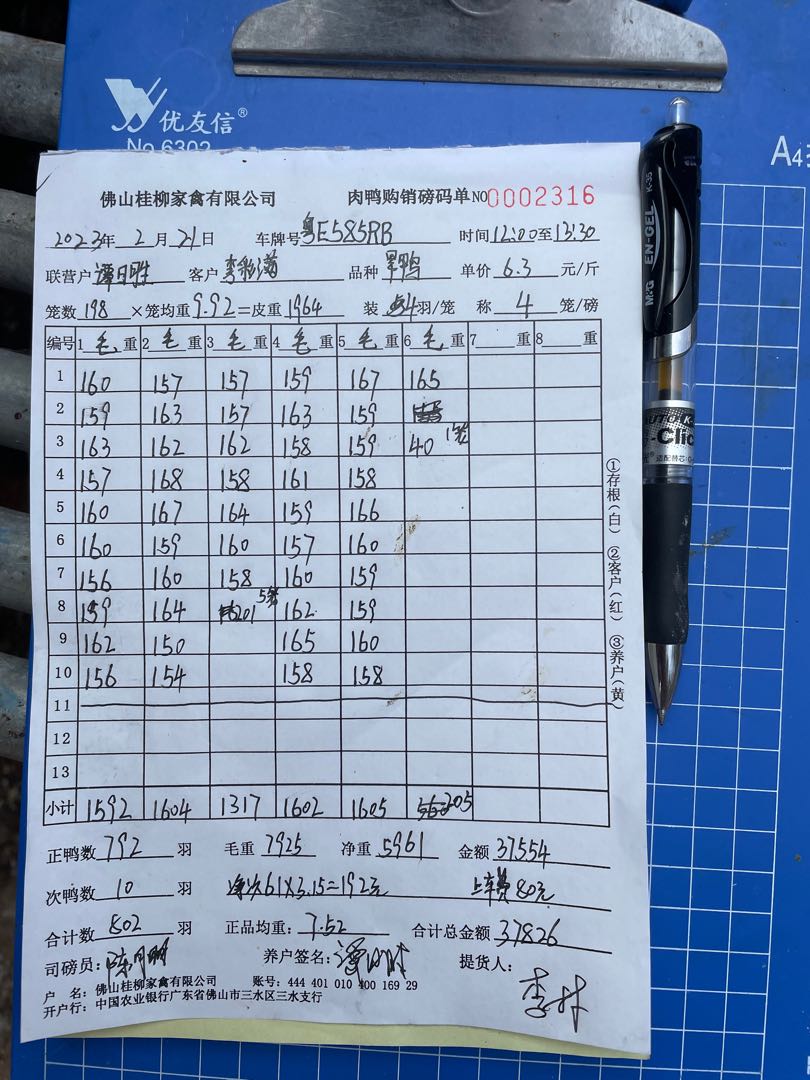 优友信®
No.6302
A4
M&G EN-GEL K-35
佛山桂柳家禽有限公司 肉鸭购销磅码单 NO 0002316
2023年2月21日 车牌号 粤E585RB 时间 12:00至13:30
联营户 谭日胜 客户 品种 单价 6.3 元/斤
笼数 198 ×笼均重 9.92 =皮重 1964 装 4羽/笼 称 4 笼/磅
编号 1 毛 重 2 毛 重 3 毛 重 4 毛 重 5 毛 重 6 毛 重 7 重 8 重
1 160 157 157 159 167 165
2 159 163 157 163 159
3 163 162 162 158 159 40 1笼
4 157 168 158 161 158
5 160 167 164 159 166
6 160 159 160 157 160
7 156 160 158 160 159
8 159 164 201 5笼 162 159
9 162 150 165 160
10 156 154 158 158
11
12
13
小计 1592 1604 1317 1602 1605 205
正鸭数 792 羽 毛重 7925 净重 5961 金额 37554
次鸭数 10 羽 净次61×3.15=192元 上车费80元
合计数 802 羽 正品均重: 7.52 合计总金额 37826
司磅员: 养户签名: 提货人: 李林
户 名: 佛山桂柳家禽有限公司 账号: 444 401 010 400 169 29
开户行: 中国农业银行广东省佛山市三水区三水支行
①存根(白) ②客户(红) ③养户(黄)